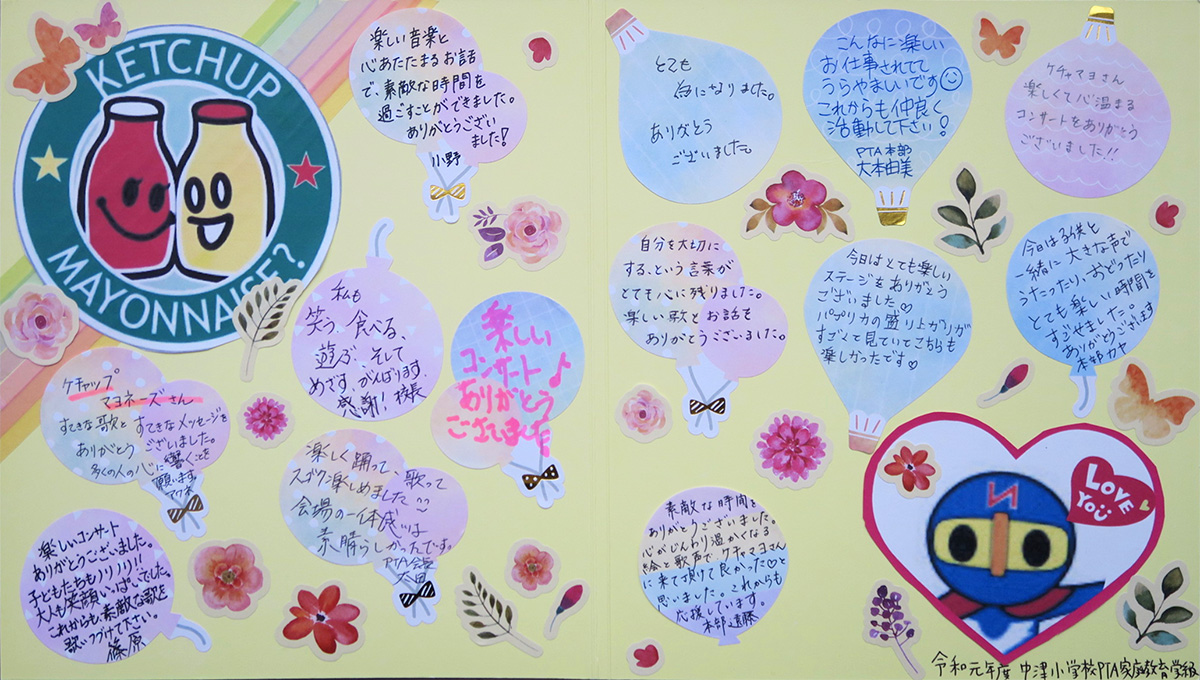 KETCHUP
MAYONNAISE?
楽しい音楽と
心あたたまるお話
で、素敵な時間を
過ごすことができました。
ありがとうござい
ました!
小野
私も
笑う、食べる、
遊ぶ、そして
めざす、がんばります。
感謝! 校長
楽しい
コンサート♪
ありがとう
ございました
ケチャップ
マヨネーズさん
すてきな歌とすてきなメッセージを
ありがとうございました。
多くの人の心に響くことを
願います。
楽しく踊って、歌って
スゴク楽しめました
会場の一体感は
素晴らしかったです。
PTA会長
太田
楽しいコンサート
ありがとうございました。
子どもたちもノリノリ!!
大人も笑顔いっぱいでした。
これからも素敵な歌を
歌いつづけて下さい。
篠原
とても
為になりました。
ありがとう
ございました
こんなに楽しい
お仕事されてて
うらやましいです
これからも仲良く
活動して下さい!
PTA本部
大本由美
ケチャマヨさん
楽しくて心温まる
コンサートをありがとう
ございました!!
自分を大切に
する、という言葉が
とても心に残りました。
楽しい歌とお話を
ありがとうございました。
今日はとても楽しい
ステージをありがとう
ございました♡
パプリカの盛り上がりが
すごくて見ていてこちらも
楽しかったです♡
今日は子供と
一緒に大きな声で
うたったり、おどったり
とても楽しい時間を
すごせました。
ありがとうございます
本部カヤ
素敵な時間を
ありがとうございました。
心がじんわり温かくなる
絵と歌声で、ケチャマヨさん
に来て頂けて良かった♡と
思いました。これからも
応援しています。
本部遠藤
LOVE
YOU
令和元年度 中津小学校PTA家庭教育学級